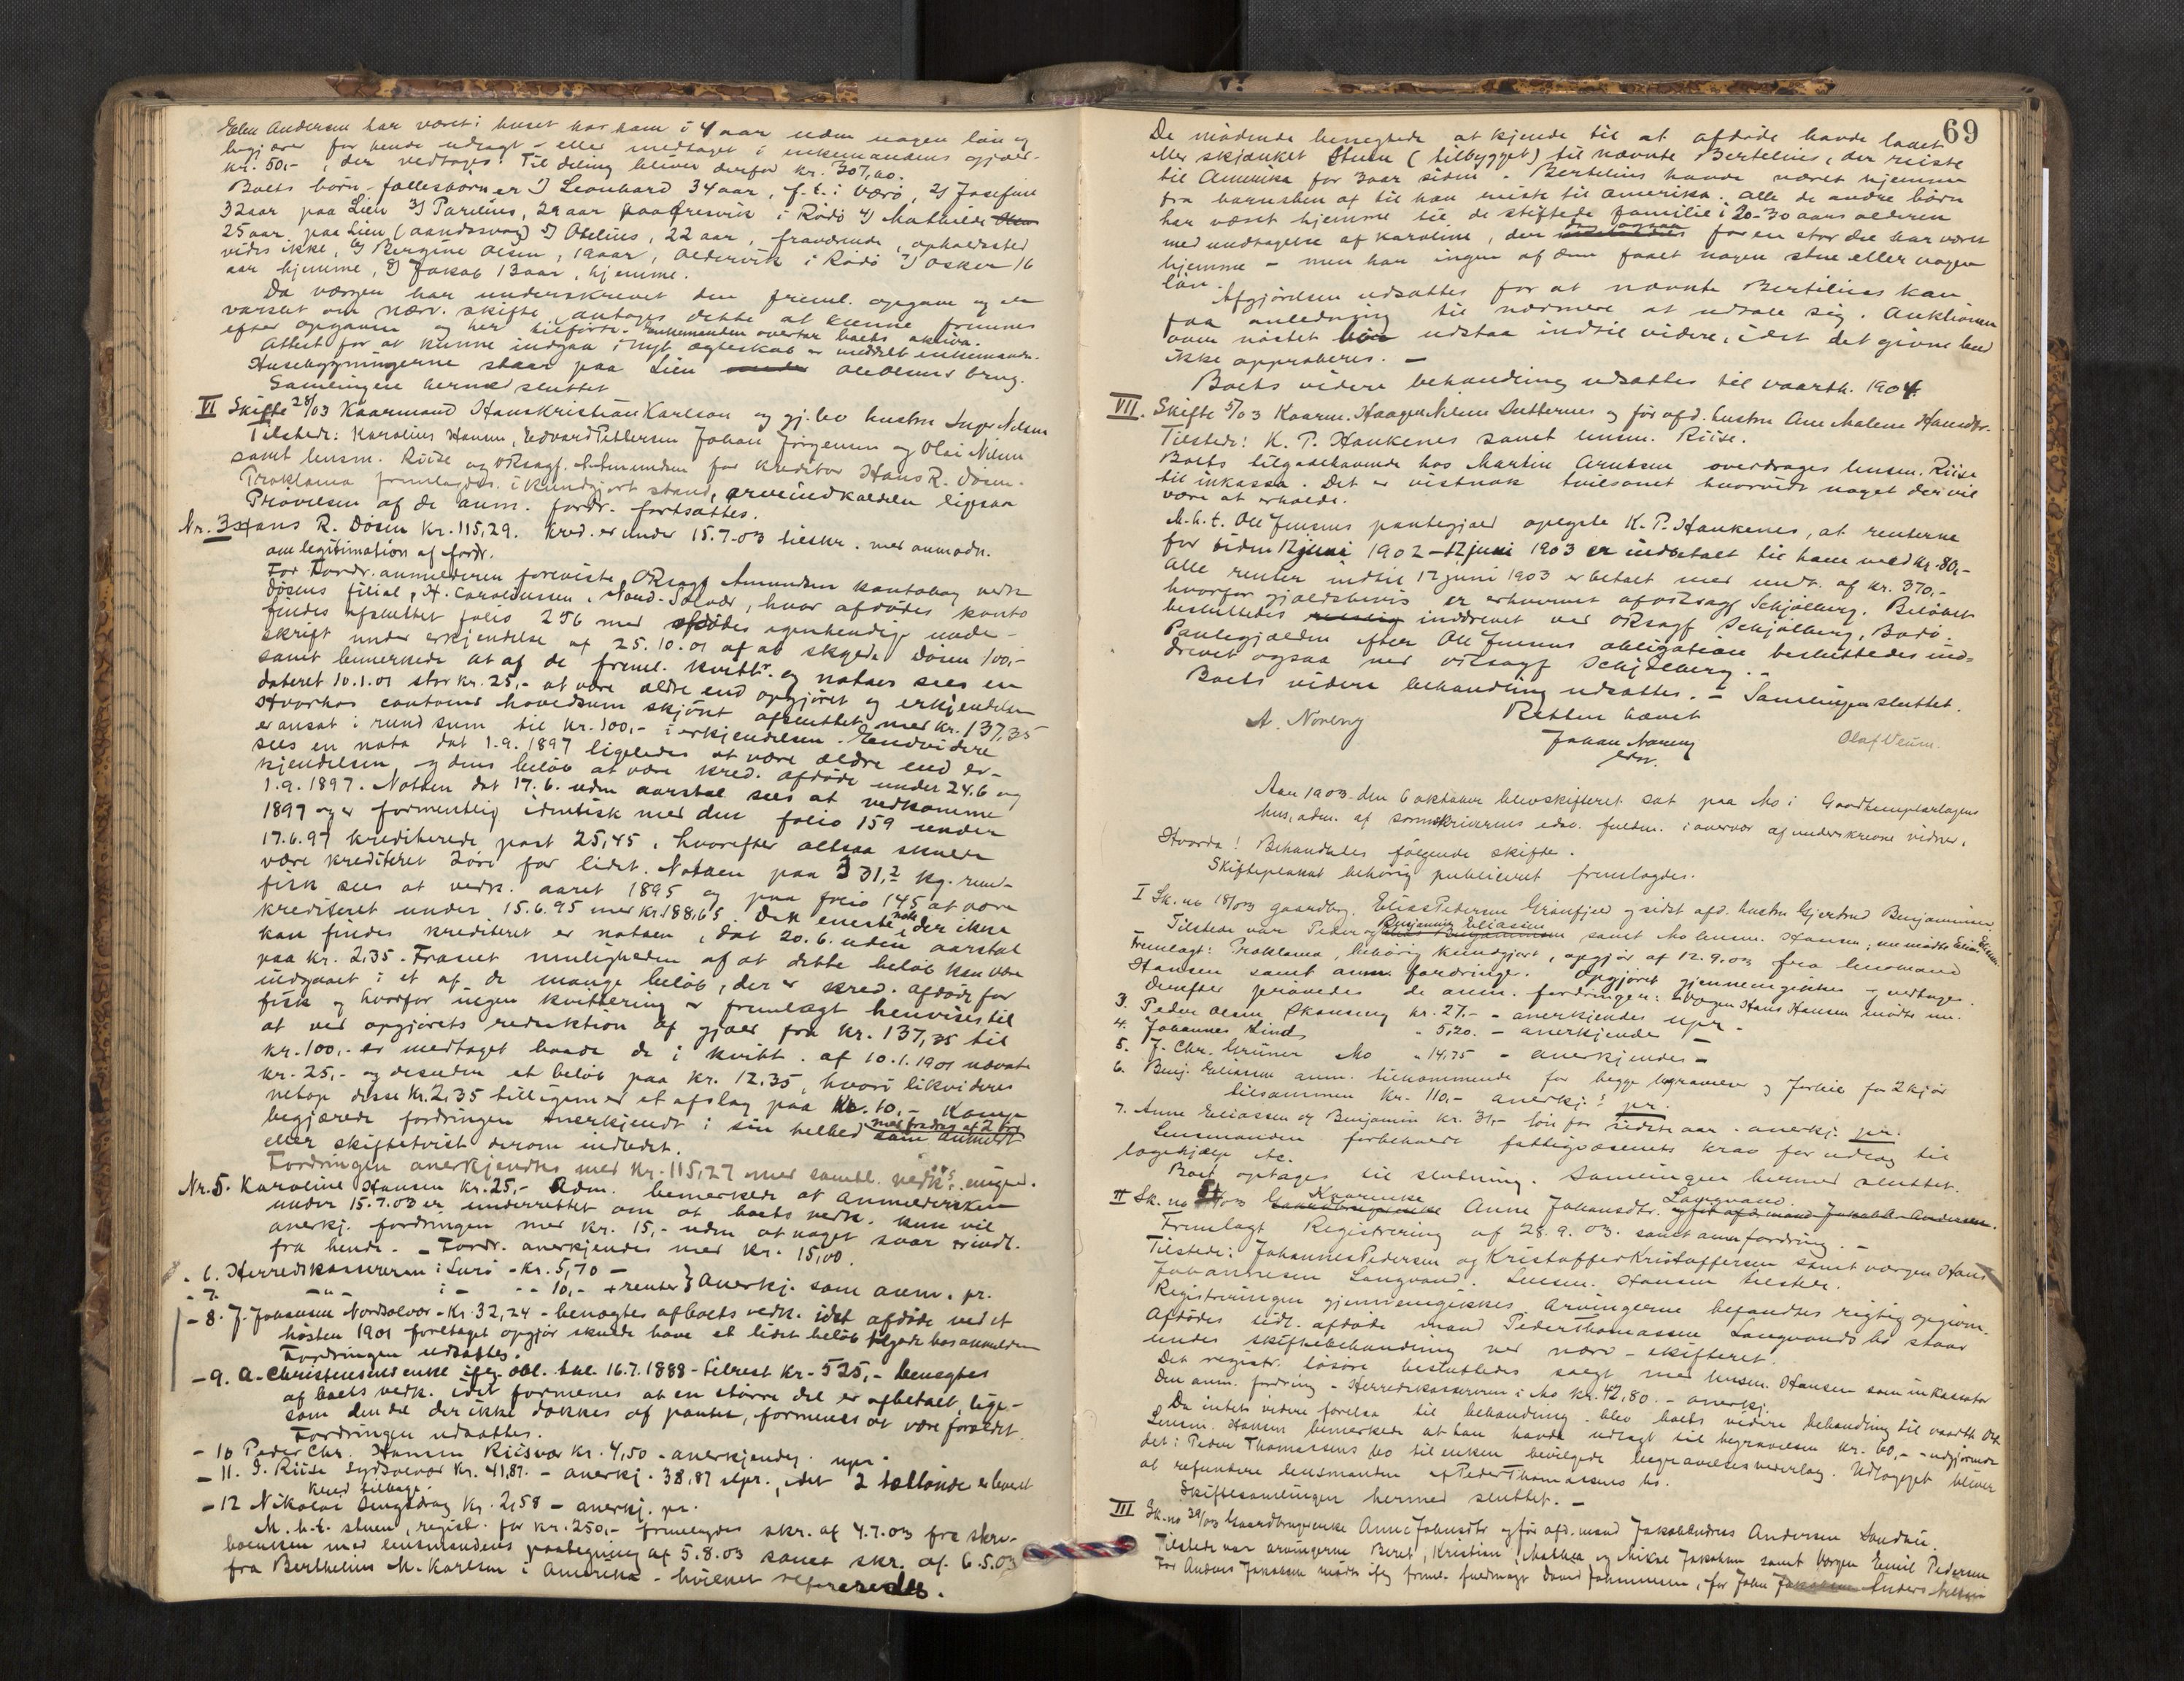 Elen Andersen har været i huset hos ham i 4 aar uden nogen løn og
begjærer for hende udlagt - eller medtaget i enkemandens gjæld -
kr. 50,- , der vedtages. Til deling bliver derfor kr. 307,60.
Boets børn - fællesbørn er 1) Leonhard 34 aar, f.t. i Værø, 2) Josefine
32 aar paa Lien 3) Parelius, 29 aar paa i Rødø 4) Mathilde
25 aar paa Lien (aandssvag) 5) Otelius, 22 aar, fraværende, opholdssted
vides ikke, 6) Bergine Olsen, 19 aar, Oldervik i Rødø 7) Osker 16
aar hjemme, 8) Jakob 13 aar, hjemme.
Da værgen har underskrevet den freml. opgave og er
varslet om nærv. skifte, antages dette at kunne fremmes
efter opgaven og her tilførte. Enkemanden overtar boets aktiva.
Attest for at kunne indgaa i nyt ægteskab er meddelt enkemanden.
Husebygningerne staar paa Lien Ole Olsens brug.
Samlingen hermed sluttet
VI Skifte 28/03 Kaarmand Hans Kristian Karlson og gj.lev hustru Inger Nilsen
Tilstede: Karolius Hansen, Edvard Pettersen Johan Jørgensen og Olai Nilsen
samt lensm. Riise og ORsagf. Amundsen for kreditor Hans R. Døsen.
Proklama fremlagdes i kundgjort stand, arveindkaldelse ligesaa
Prøvelsen af de anm. fordr. fortsattes.
Nr. 3 Hans R. Døsen kr. 115,29. Kred. er under 15.7.03 tilskr. med anmodn.
om legitimation af fordr.
For Fordr. anmelderen foreviste ORsagf Amundsen kontobog vedk
Døsens filial, H. Caroliussen, Nord-Solvær, hvor afdødes konto
findes afsluttet folio 256 med afdødes egenhændige under-
skrift under erkjendelse af 25.10.01 af at skylde Døsen 100,-
samt bemerkede at af de freml. kvittr. og notaer sees en
dateret 10.1.01 stor kr. 25,- at være ældre end opgjøret og erkjendelsen
Hvorhos contoens hovedsum skjønt afsluttet med kr. 137,35
er ansat i rund sum til kr. 100,- i erkjendelsen. Endvidere
sees en nota dat 1.9.1897 ligeledes at være ældre end er-
kjendelsen, og dens beløb at være kred. afdøde under 24.6 og
1.9.1897. Notaen dat 17.6. uden aarstal sees at vedkomme
1897 og er formentlig identisk med den folio 159 under
17.6.97 krediterede post 25,45, hvorefter altsaa skulde
være krediteret 2 øre for lidet. Notaen paa 331,2 kg. rund-
fisk sees at vedk. aaret 1895 og paa folio 145 at være
krediteret under 15.6.95 med kr. 188,65. Den eneste nota der ikke
kan findes krediteret er notaen, dat 20.6. uden aarstal
paa kr. 2,35. Fraset muligheden af at dette beløb kan være
indgaaet i et af de mange beløb, der er kred. afdøde for
fisk og hvorfor ingen kvittering er fremlagt henvises til
at ved opgjørets reduktion af gjæld fra kr. 137,35 til
kr. 100,- er medtaget baade de i kvitt. af 10.1.1901 nævnte
kr. 25,- og desuden et beløb paa kr. 12.35, hvori likvideres
netop disse kr. 2,35 tilligemed et afslag paa kr. 10,-
begjærede fordringen anerkjendt i sin helhed med fradrag af 2 øre som anmeldt
eller skiftetvist derom indledet.
Fordringen anerkjendtes med kr. 115,27 med samtl. vedk. enighed.
Nr. 5. Karoline Hansen kr. 25,- Adm. bemerkede at anmeldersken
under 15.7.03 er underrettet om at boets vedk. kun vil
anerkj. fordringen med kr. 15,- uden at noget svar er indl.
fra hende. - Fordr. anerkjendes med kr. 15,00.
- 6. Herredskassereren i Lurø - kr. 5,70 -
- 7. -"- i - -- 10,- + renter } Anerkj. som anm. pr.
- 8. J. Johansen Nordsolvær - Kr. 32,24 - benegtes af boets vedk. idet afdøde ved et
høsten 1901 foretaget opgjør skulde have et lidet beløb tilgode hos anmelderen
Fordringen udsattes.
- 9. A. Christensens enke ifølg. obl. tnl. 16.7.1888 - tilrest kr. 525,- benegtes
af boets vedk. idet formenes at en større del er afbetalt, lige-
som den del der ikke dækkes af pantet, formenes at være forældet.
Fordringen udsattes.
- 10 Peder Chr. Hansen Riisvær kr. 4,50 - anerkjendes upr.
- 11. I. Riise Sydsolvær kr. 41,87. - anerkj. 38,87 upr., idet 2 tællende er levert
kred tilbage.
- 12 Nikolai Lengsdrag kr. 2,58 - anerkj. pr.
M.h.t. stuen, regist. for kr. 250,- fremlagdes skr. af 4.7.03 fra skre-
boenken med lensmandens paategning af 5.8.03 samt skr. af 6.5.03
fra Berthelius M. Karlsen i Amerika - hvilket refereredes.
69
De mødende benegtede at kjende til at afdøde havde lovet
eller skjænket Stuen (tilbygget) til nævnte Bertelius, der reiste
til Amerika for 3 aar siden. Bertelius havde været hjemme
fra barnsben af til han reiste til Amerika. Alle de andre børn
har været hjemme til de stiftede familie i 20-30 aars alderen
med undtagelse af Karoline, der for en stor del har været
hjemme - men har ingen af dem faaet nogen stue eller nogen
løn.
Afgjørelsen udsattes for at nævnte Bertelius kan
faa anledning til nærmere at udtale sig. Auktionen
over nøstet udstaa indtil videre, idet det givne bud
ikke approberes. -
Boets videre behandling udsattes til vaarth. 1904.
VII. Skifte 5/03 Kaarm. Haagen Nilsen Sutternes og før afd. hustru Ane Malene Hansdtr.
Tilstede: K. P. Haukenes samt lensm. Riise.
Boets tilgodehavende hos Martin Arntsen overdrages lensm. Riise
til inkassa. Det er vistnok tvilsomt hvorvidt noget der vil
være at erholde.
M.h.t. Ole Jensens pantegjæld oplyste K. P. Haukenes, at renterne
for tiden 12 juni 1902 - 12 juni 1903 er indbetalt til ham med kr. 80,-
Alle renter indtil 12 juni 1903 er betalt med undt. af kr. 370,-
hvorfor gjældsbevis er erhvervet af ORsagf Schjølberg. Beløbet
besluttedes inddrevet ved ORsagf Schjølberg, Bodø.
Pantegjælden efter Ole Jensens obligation besluttedes ind-
drevet ogsaa ved ORsagf Schjølberg. -
Boets videre behandling udsattes. - Samlingen sluttet.
Retten hævet
A. Noreng
Johan Noreng
edsv.
Olaf Veum.
Aar 1903 den 6 oktober blev skifteret sat paa Mo i Goodtemplarlogens
hus, adm. af sorenskriverens edsv. fuldm. i overvær af underskrevne vidner.
Hvorda! Behandles følgende skifte.
Skifteplakat behørig publiceret fremlagdes.
I Sk. no 18/03 gaardbr. Elias Pedersen Grønfjeld og sidst afd. hustru Gjertrud Benjaminsen.
Tilstede var Peder og Benjamin Eliassen samt Mo lensm. Hansen; nu mødte Elias Eliassen.
Fremlagt: Proklama, behørig kundgjort, opgjør af 12.9.03 fra lensmand
Hansen samt anm. fordringer. Opgjøret gjennemgikkes og vedtages.
Derefter prøvedes de anm. fordringer: - Værgen Hans Hansen mødte nu.
3. Peder Olsen Skonseng kr. 27.- - anerkjendes upr -
4. Johannes Lind " 5,20. - anerkjendes -
5. J. Chr. Grüner Mo " 14,75 - anerkjendes -
6. Benj. Eliassen anm. tilkommende for begge begravelser og forhie for 2 kjør
tilsammen kr. 110,- anerkj: pr.
7. Anne Eliassen og Benjamin kr. 31,- løn for sidste aar. anerkj. pr.
Lensmanden forbeholdt fattigvæsenets krav for udlæg til
lægehjælp &c.
Boet optages til slutning. Samlingen hermed sluttet.
II Sk. no 03 Kaarenke Anne Johansdtr. Langvand.
Fremlagt Registrering af 28.9.03. samt anm fordring. -
Tilstede: Johannes Pedersen og Kristoffer Kristoffersen samt værgen Hans
Johannesen Langvand. Lensm. Hansen tilstede.
Registreringen gjennemgikkes. Arvingerne befandtes rigtig opgivne.
Afdødes tidl. afdøde mand Peder Thomassen Langvands bo staar
under skiftebehandling ved nærv. skifteret.
Det registr. løsøre besluttedes solgt med lensm. Hansen som inkassator
Den anm. fordring - Herredskassereren i Mo kr. 42,80. - anerkj.
Da intet videre forelaa til behandling blev boets videre behandling til vaarth. Ots.
Lensm. Hansen bemerkede at han havde udlagt til begravelsen kr. 60,- - udgjørende
det i Peder Thomassens bo til enken bevilgede begravelsesvederlag. Udlægget bliver
at refundere lensmanden af Peder Thomassens bo.
Skiftesamlingen hermed sluttet. -
III Sk. no 39/03 Gaardbrugerenke Anne Johnsdtr og før afd. mand Jakob Andreas Andersen
Tilstede var arvingerne Beret, Kristian, Mathea og Mikal Jakobsen samt værgen Emil Pedersen
For Anders Jakobsen mødte ifg freml. fuldmagt David Johannesen, for John Anders